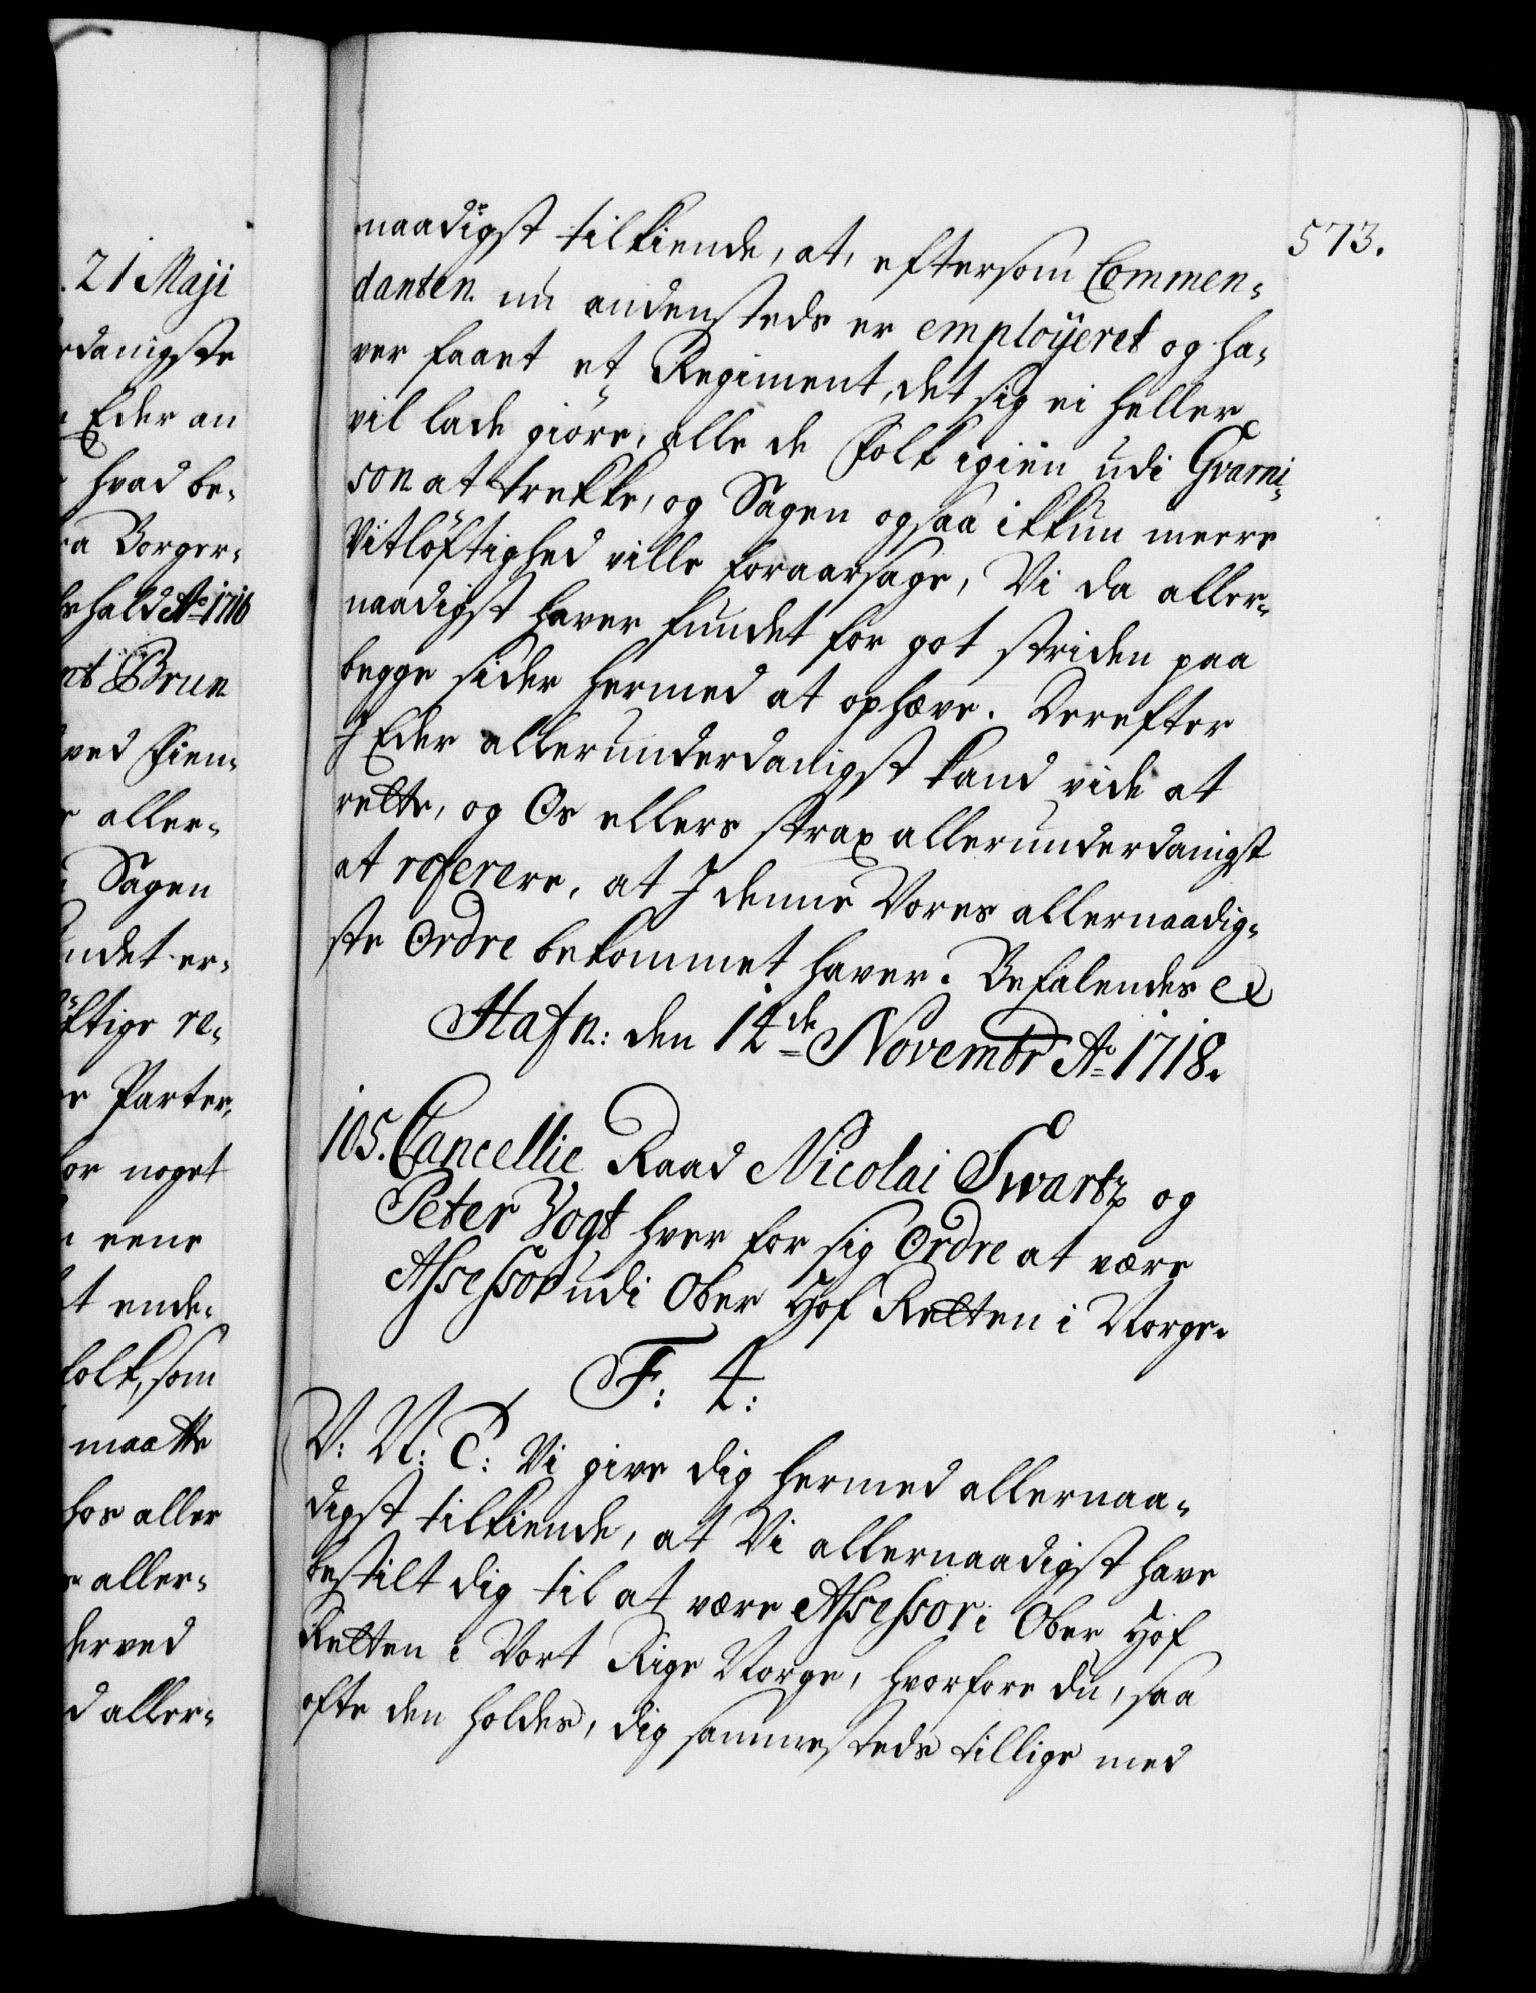 . 21 Maji
rdanigste
Eder an
hvad be-
ra Borger-
hald Aº 1716
nt Brun
ved Fien-
aller-
Sagen
ndet er-
ftige re-
Parter,
for noget
eene
t ende-
folk, som
maatte
hos aller
aller-
derved
d aller-
573.
naadigst tilkiende, at, eftersom Commen-
danten nu andensteds er employeret og ha-
ver faaet et Regiment, det sig ei heller
vil lade giøre, alle de Folk igien udi Gvarni-
son at trekke, og Sagen ogsaa ikkun meere
Vitløftighed ville foraarsage, Vi da aller-
naadigst haver fundet for got striden paa
begge sider hermed at ophæve. Derefter
I Eder allerunderdanigst kand vide at
rette, og Os ellers strax allerunderdanigst
at referere, at I denne Vores allernaadig-
ste Ordre bekommet haver. Befalendes &c
Hafn: den 14de Novembr Aº 1718.
105. Cancellie Raad Nicolai Swartz og
Peter Vogt hver for sig Ordre at være
Assessor udi Ober Hof Retten i Norge.
F: 4:
V: N: T: Vi give dig hermed allernaa-
digst tilkiende, at Vi allernaadigst have
bestilt dig til at være Assessor i Ober Hof
Retten i Vort Rige Norge, hvorfore du, saa
ofte den holdes, dig sammesteds tillige med